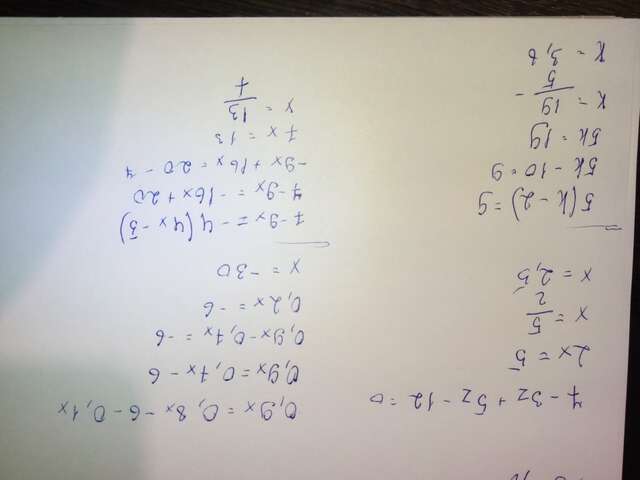 7 - 3z + 5z - 12 = 0
2x = 5
x = 5/2
x = 2,5
5(k - 2) = 9
5k - 10 = 9
5k = 19
K = 19/5
K = 3,8
0,9x = 0,8x - 6 - 0,1x
0,9x = 0,7x - 6
0,9x - 0,7x = -6
0,2x = -6
x = -30
7 - 9x = -4(4x - 5)
7 - 9x = -16x + 20
-9x + 16x = 20 - 7
7x = 13
x = 13/7